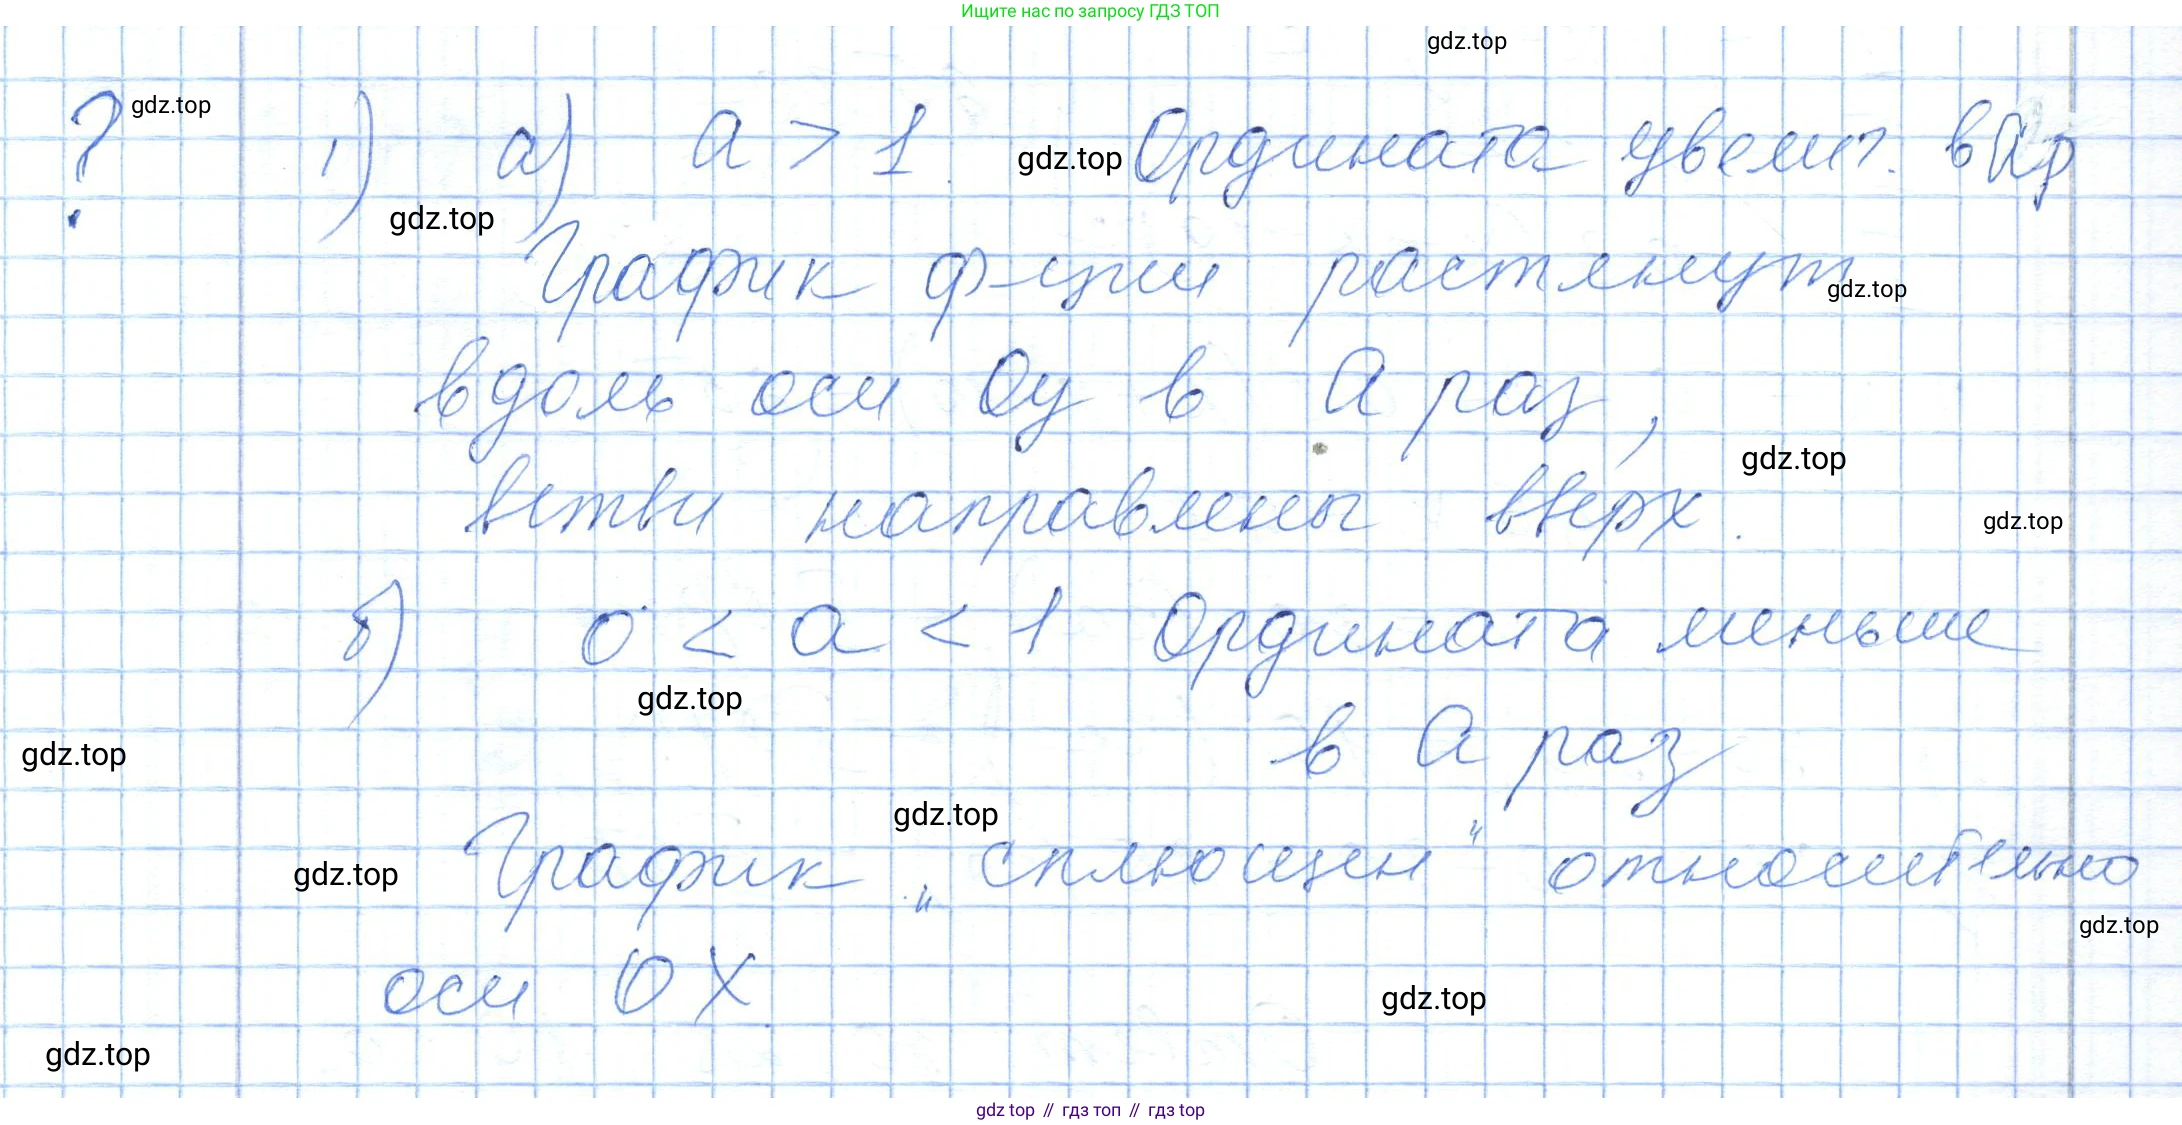 Ищите нас по запросу ГДЗ ТОП
gdz.top
? gdz.top 1) а) a > 1. gdz.top Ордината увелич. в a р
gdz.top
График ф-ции растянут
gdz.top
вдоль оси Oy в a раз,
gdz.top
ветви направлены вверх.
gdz.top
б) 0 < a < 1 Ордината меньше
gdz.top
в a раз
gdz.top
gdz.top
График „сплющен“ относительно
gdz.top
gdz.top
оси OX.
gdz.top
gdz.top
gdz top // гдз топ // гдз top